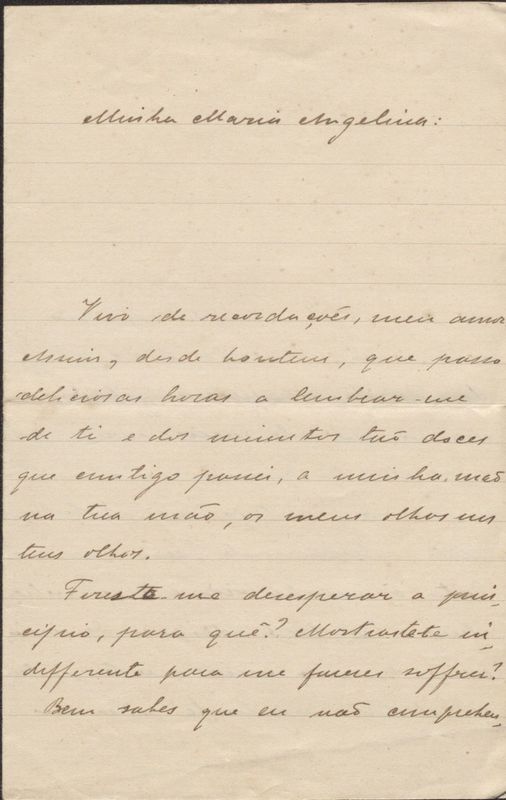 Minha Maria Angelina:
Vivo de recordações, meu amor
desde hontem, que passo
deliciosas horas a lembrar-me
de ti e dos minutos tão doces
que comtigo passei, a minha mão
na tua mão, os meus olhos nos
teus olhos.
me desesperar a prin-
cipio, para quê? Mostraste-te in-
differente para me fazeres soffrer?
Bem sabes que eu não comprehen-